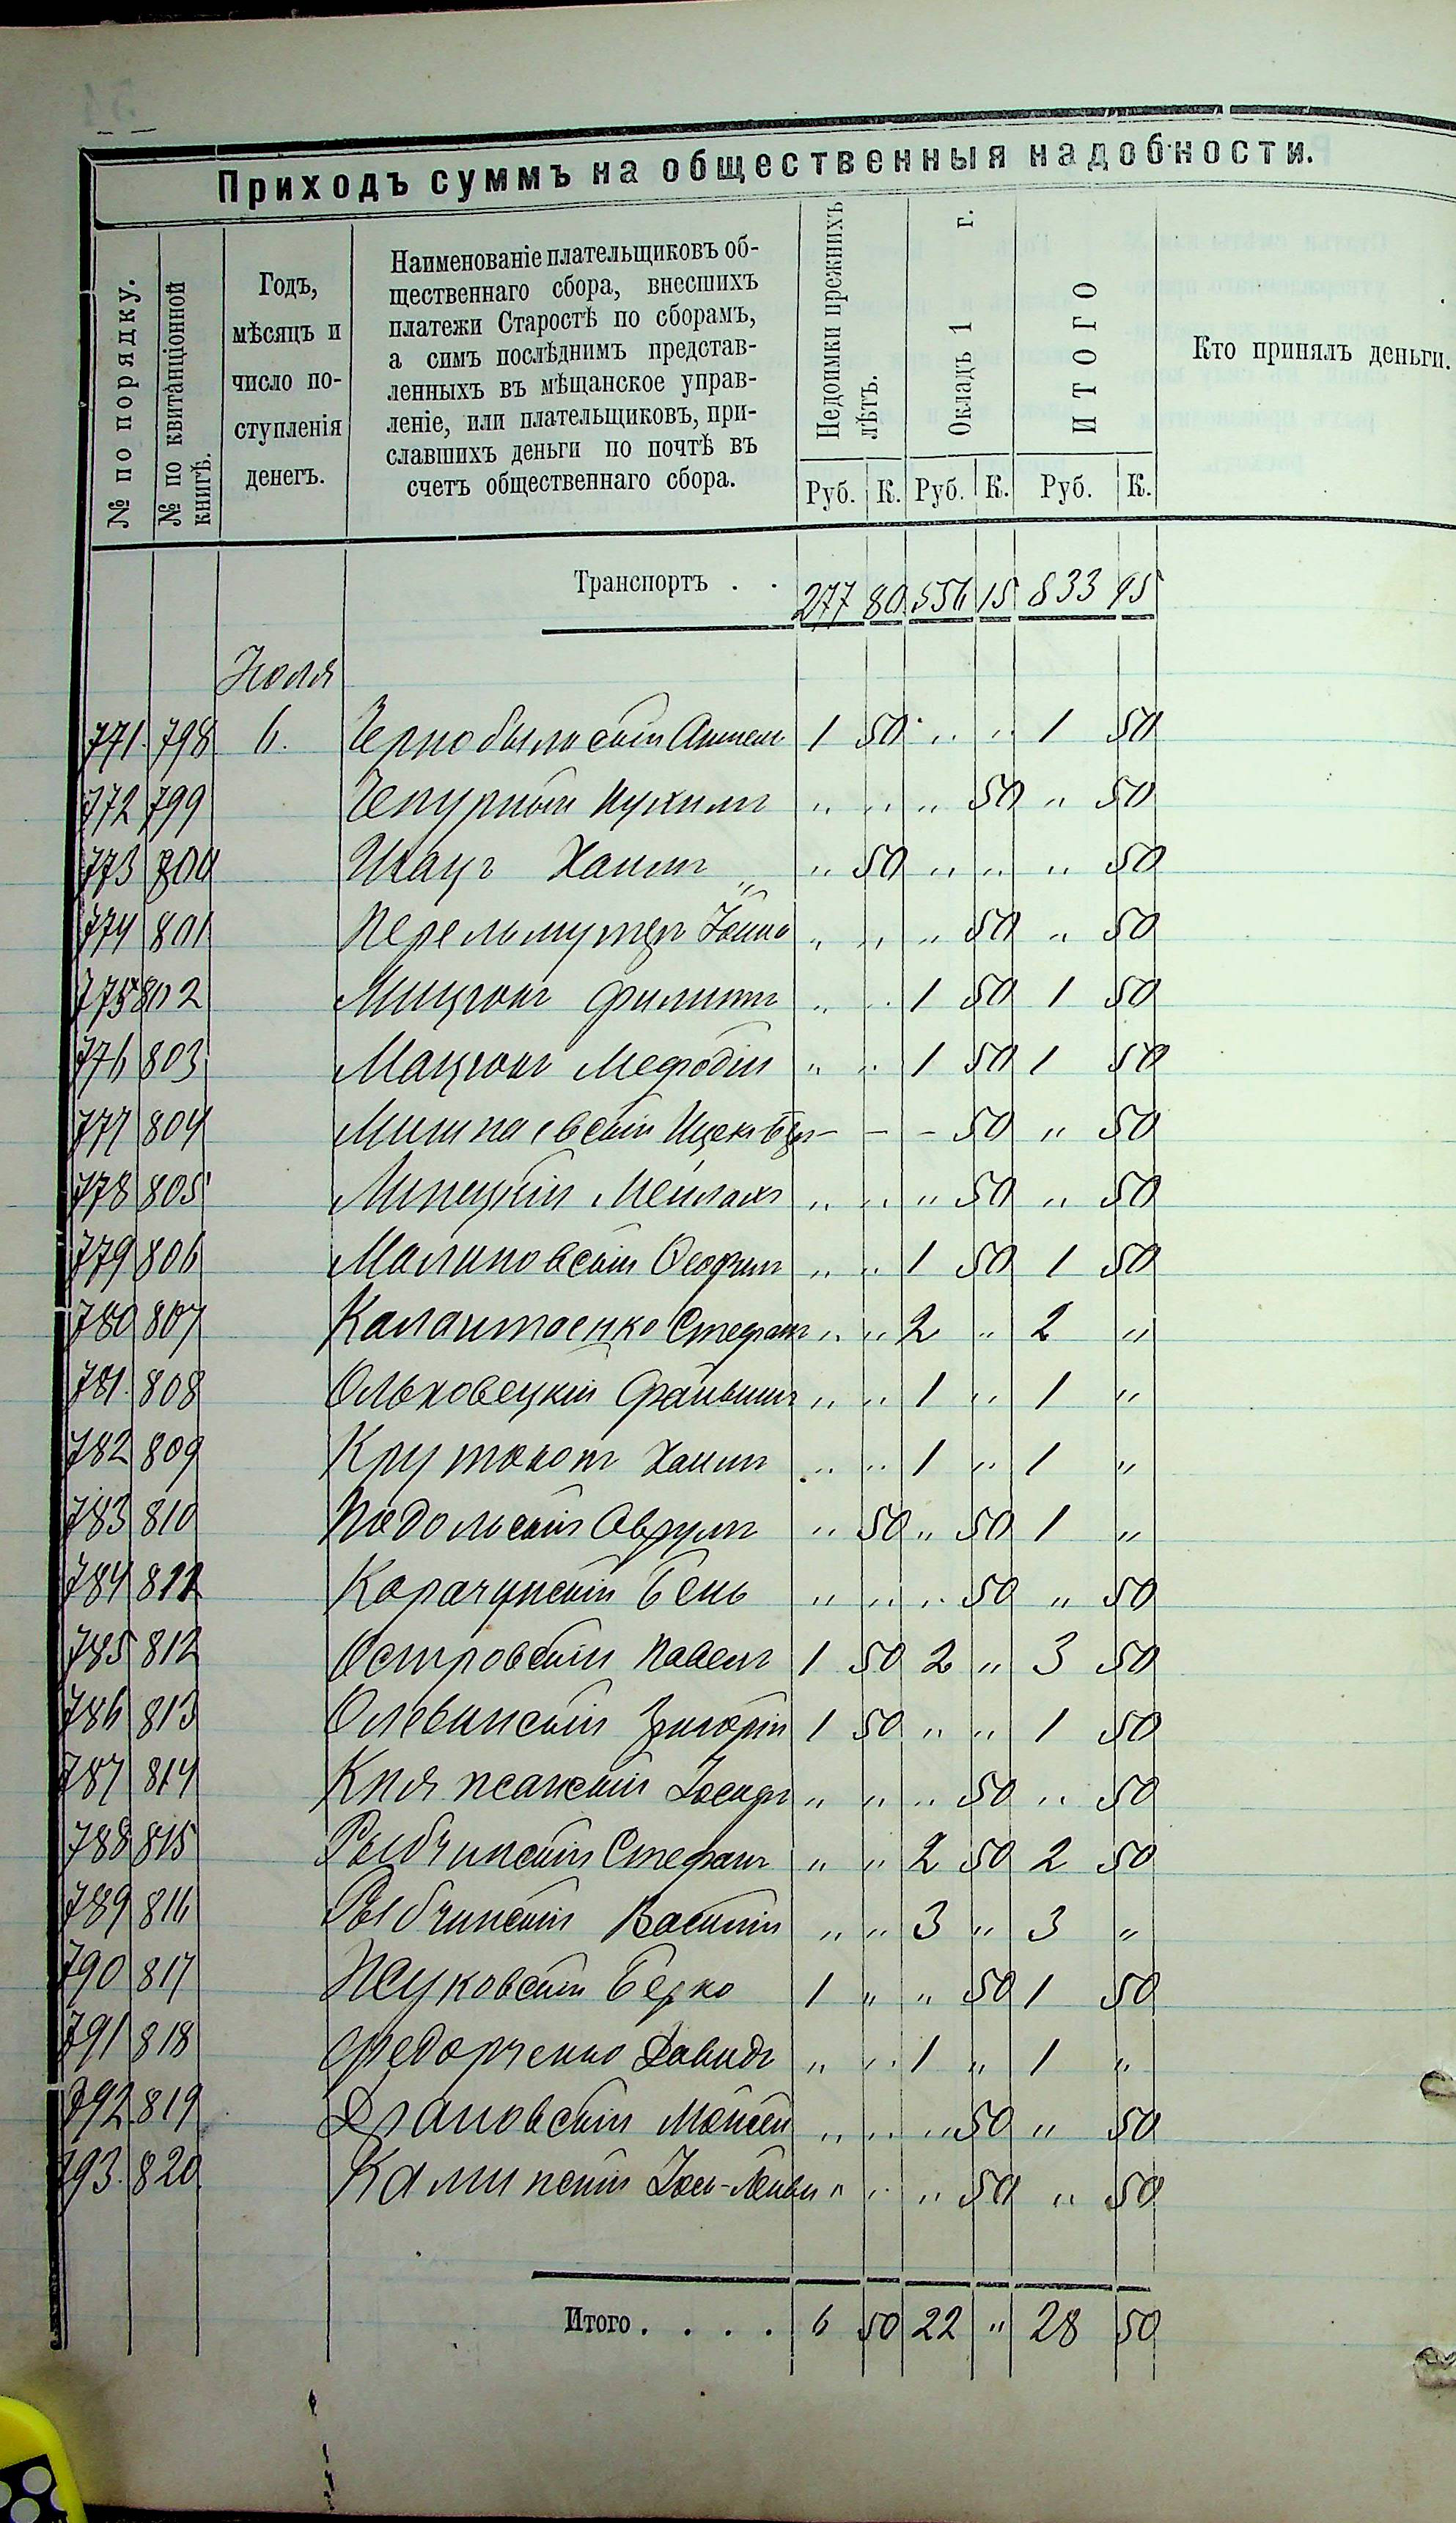 Приходъ суммъ на общественныя надобности.
№ по порядку.
№ по квитанціонной книгѣ.
Годъ, мѣсяцъ и число поступленія денегъ.
Наименованіе плательщиковъ об-
щественнаго сбора, внесшихъ
платежи Старостѣ по сборамъ,
а симъ послѣднимъ представ-
ленныхъ въ мѣщанское управ-
леніе, или плательщиковъ, при-
славшихъ деньги по почтѣ въ
счетъ общественнаго сбора.
Недоимки прежнихъ лѣтъ.
Окладъ 1 г.
ИТОГО
Кто принялъ деньги.
Руб. К. Руб. К. Руб. К.
Транспортъ . . 277 80 556 15 833 95
Іюля
771. 798 6. Чернобыльскій 1 50 " " 1 50
772 799 Чепурный Нухимъ " " " 50 " 50
773 800 Шацъ Хаимъ " 50 " " " 50
774 801 Перельмутеръ " " " 50 " 50
775 802 Филиппъ " " 1 50 1 50
776 803 Мефодій " " 1 50 1 50
777 804 - - - 50 " 50
778 805 Липецкій Мейлахъ " " " 50 " 50
779 806 Малиновскій " " 1 50 1 50
780 807 Стефанъ " " 2 " 2 "
781. 808 Ольховецкій Файвишъ " " 1 " 1 "
782 809 Хаимъ " " 1 " 1 "
783 810 Подольскій Аврумъ " 50 " 50 1 "
784 811 Корачунскій Бень " " " 50 " 50
785 812 Островскій Павелъ 1 50 2 " 3 50
786 813 Олевинскій Григорій 1 50 " " 1 50
787 814 Княжанскій Іосифъ " " " 50 " 50
788 815 Рыбчинскій Стефанъ " " 2 50 2 50
789 816 Рыбчинскій Василій " " 3 " 3 "
790 817 Жуковскій Берко 1 " " 50 1 50
791 818 Федорченко Давидъ " " 1 " 1 "
792. 819 Моисей " " " 50 " 50
793. 820 Каминскій " " " 50 " 50
Итого. . . . 6 50 22 " 28 50